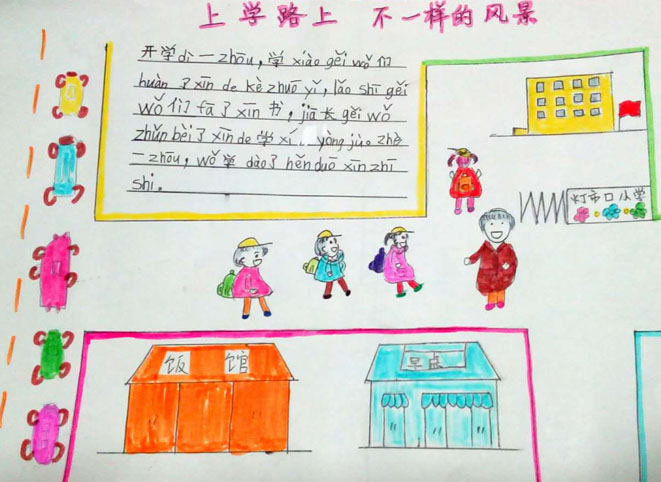 上学路上 不一样的风景
开学dì一zhōu,学xiào gěi wǒ们
huàn了xīn de kè zhuō yǐ,lǎo shī gěi
wǒ们fā了xīn书,jiā长gěi wǒ
zhǔn bèi了xīn de学xí yòng jù。zhè
一zhōu,wǒ学dào了hěn duō xīn zhī
shi。
灯市口小学
饭馆
早点